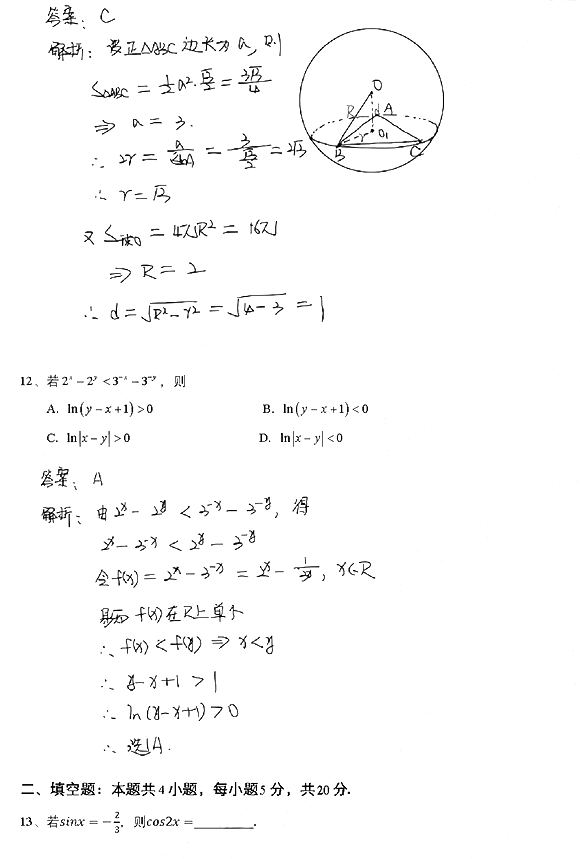 答案：C
解析：设正△ABC边长为a，则
S△ABC = 1/2 a²·√3/2 = 9√3/4
⇒ a = 3.
∴ 2r = a/sinA = 3/(√3/2) = 2√3
∴ r = √3
又 S球O = 4πR² = 16π
⇒ R = 2
∴ d = √(R²-r²) = √(4-3) = 1
O
R
d
A
r
O₁
B
C
12、若 2ˣ - 2ʸ < 3⁻ˣ - 3⁻ʸ，则
A. ln(y-x+1)>0 B. ln(y-x+1)<0
C. ln|x-y|>0 D. ln|x-y|<0
答案：A
解析：由2ˣ - 2ʸ < 3⁻ˣ - 3⁻ʸ，得
2ˣ - 3⁻ˣ < 2ʸ - 3⁻ʸ
令f(x) = 2ˣ - 3⁻ˣ = 2ˣ - 1/3ˣ，x∈R
易知 f(x)在R上单个
∴ f(x) < f(y) ⇒ x<y
∴ y-x+1 > 1
∴ ln(y-x+1) > 0
∴ 选A.
二、填空题：本题共4小题，每小题5分，共20分.
13、若sinx = -2/3. 则cos2x = ________.